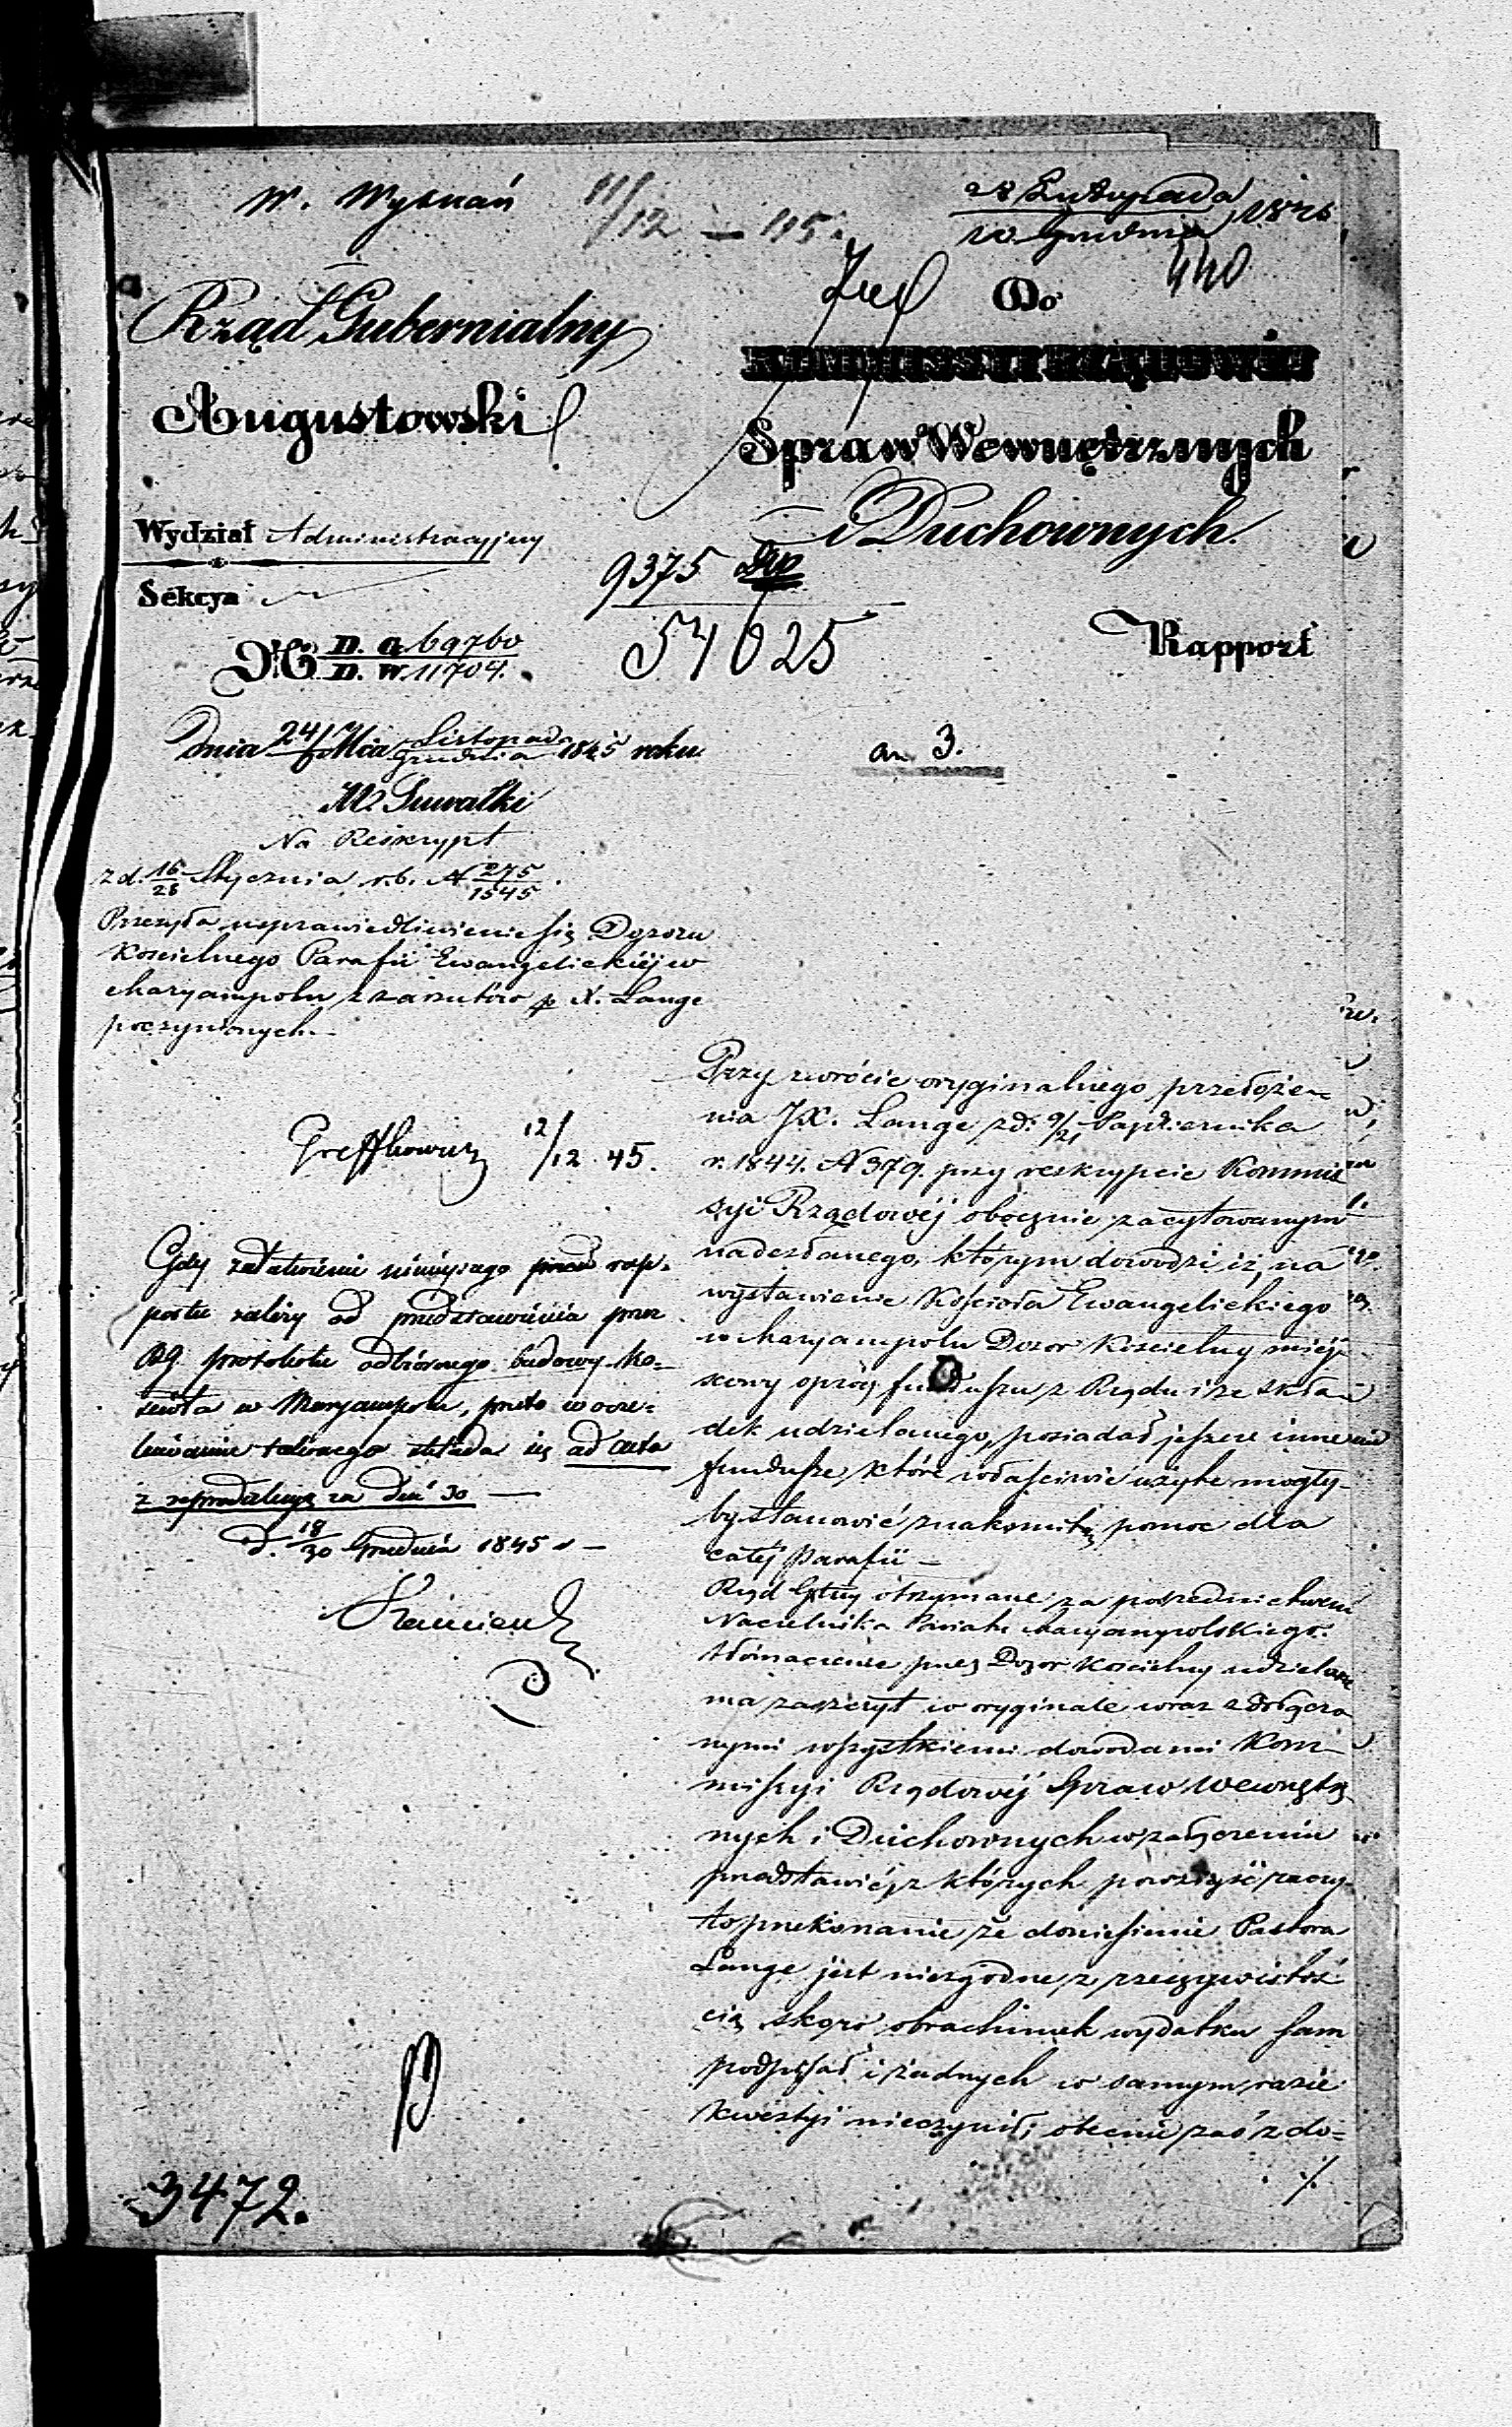 W. Wyznań 11/12 – 45.
28 Listopada
10 Grudnia 1845
440
Rząd Gubernialny
Augustowski
Do
Kommissyi Rządowéj
Spraw Wewnętrznych
i Duchownych.
Wydział Administracyjny
Sekcya
9375
54625
Rapport
№ D. a 69760
D. W. 11704.
dnia 24/6 Mca Listopada/Grudnia 1845 roku
an 3.
M. Suwałki
Na Reskrypt
z d. 16/28 Stycznia r. b. N 275/1545.
Przesyła usprawiedliwienie się Dozoru
Kościelnego Parafii Ewangelickiéj w
Maryampolu z zarzutów p X. Lange
poczynionych.
12/12 45.
Gdy załatwienie niniejszego rap-
portu zależy od przedstawienia przez
RG. protokołu odbiorczego budowy Ko-
ścioła w Maryampolu, przeto w ocze-
kiwaniu takowego składa się ad acta
z reprodukcyą za dni 30 —
d. 18/30 Grudnia 1845 r —
Przy zwrócie oryginalnego przełoże-
nia JX. Lange z d. 9/21 Października
r. 1844. N 379. przy reskrypcie Kommis
syi Rządowéj obocznie zacytowanym
nadesłanego, którym dowodzi iż, na
wystawienie Kościoła Ewangelickiego
w Maryampolu Dozor Kościelny miéj-
scowy oprócz funduszu z Rządu i ze skła-
dek udzielonego, posiadał jeszcze inne
fundusze, które właściwie użyte mogły-
by stanowić znakomitą pomoc dla
całéj Parafii —
Rząd Glny otrzymane za pośrednictwem
Naczelnika Powiatu Maryampolskiego
tłómaczenie przez Dozor Kościelny udzielone
ma zaszczyt w oryginale wraz z dołącza
nymi wszystkiemi dowodami Kom-
missyi Rządowéj Spraw Wewnętrz
nych i Duchownych w załączeniu
przedstawić, z których powziąść raczy
to przekonanie że doniesienie Pastora
Lange jest niezgodne z rzeczywistoś
cią skoro obrachunek wydatku sam
podpisał i żadnych w samym razie
kwestyi nieczynił; obecnie zaś z do=
./.
3472.